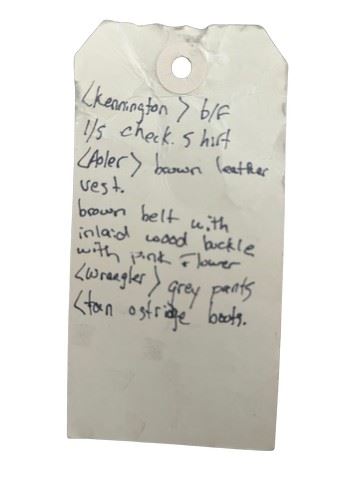 <Kennington> b/F
l/s check. shirt
<Adler> brown leather
vest.
brown belt with
inlaid wood buckle
with pink flower
<Wrangler> grey pants
<tan ostridge boots.